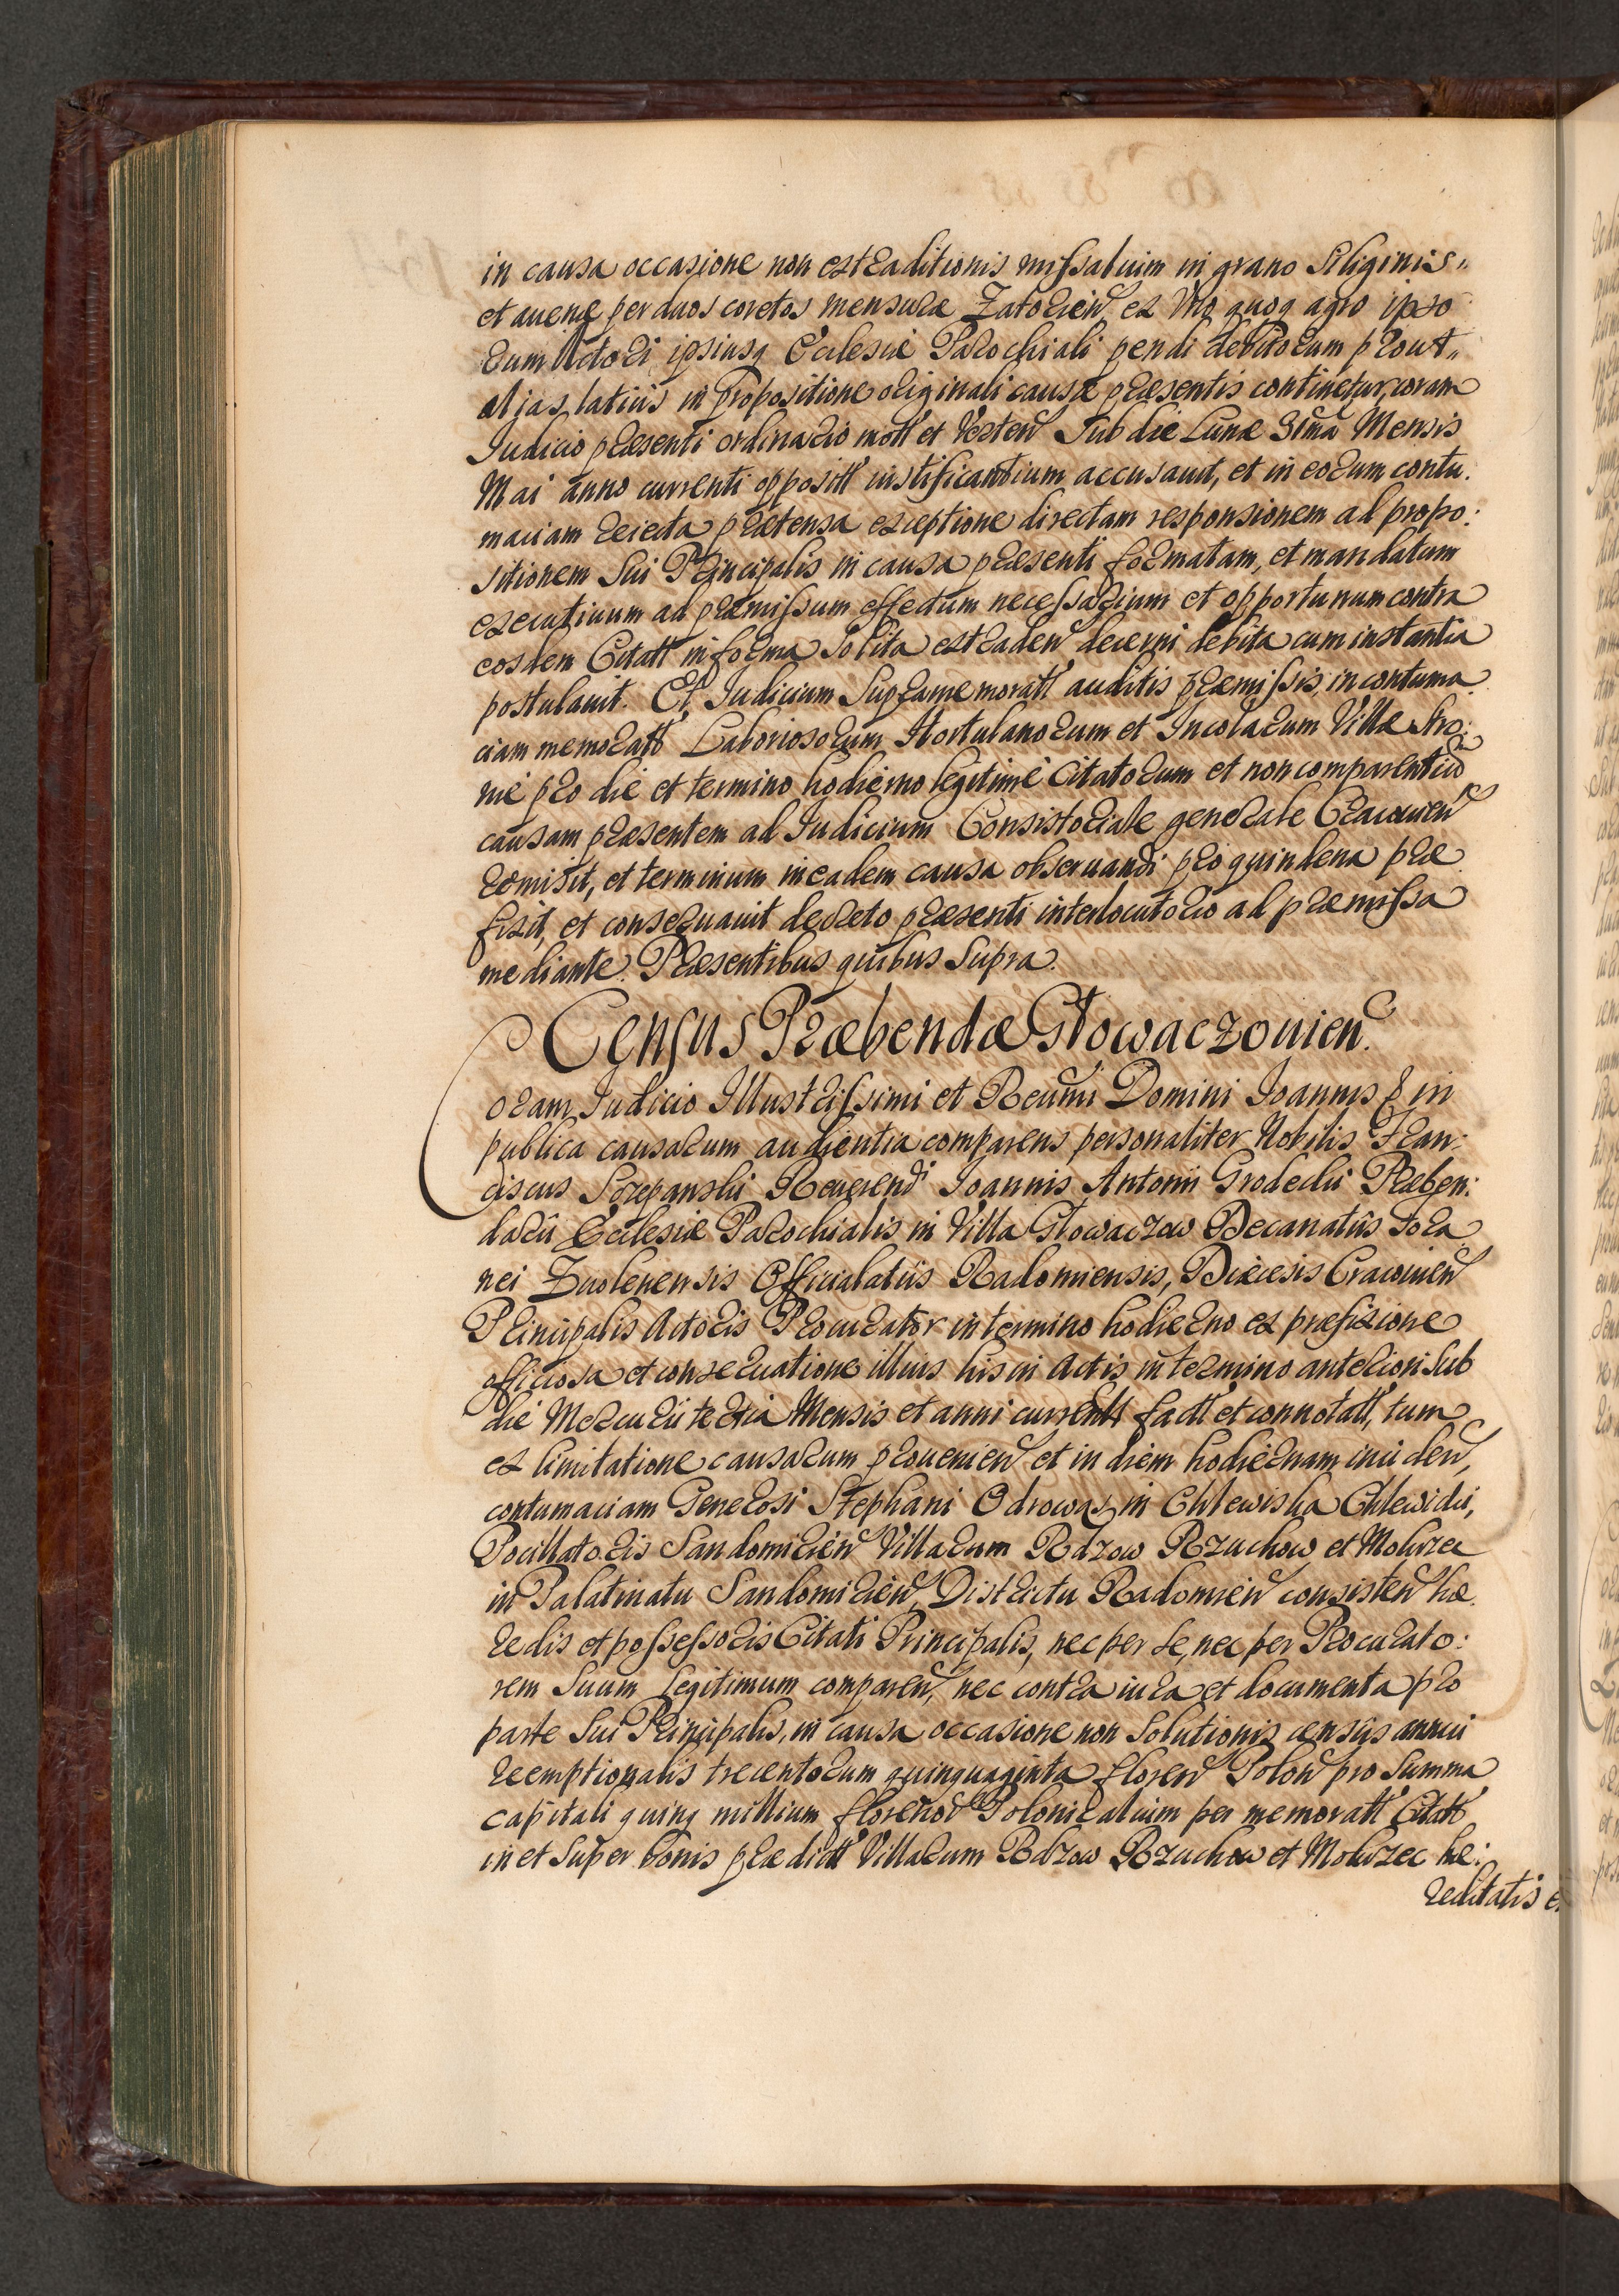 in causa occasione non extraditionis missalium in grano Siliginis„
et auenæ per duos coretos mensuræ Zatorien̄ ex Vno quoq agro ipso
rum Actori, ipsiusq Ecclesiæ Parochiali pendi debitorum prout„
aljas latiùs in propositione originali causæ præsentis continetur, coram
Iudicio præsenti ordinario mott et Verten̄ Sub die Lunæ 3tma Mensis
Mai anno currenti oppositt iustificantium accusauit, et in eorum contu.
maciam reiecta prætensa exceptione directam responsionem ad propo:
sitionem Sui Principalis in causa præsenti formatam, et mandatum
executiuum ad præmissum effectum necessarium et opportunum contra
eosdem Citatt in forma Solita extraden̄ decerni debita cum instantia
postulauit. Et Iudicium Supramemoratt auditis præmissis, in contuma
ciam memoratt Laboriosorum Hortulanorum et Incolarum Villæ Stro:
nie pro die et termino hodierno legitimè Citatorum et non comparentiū
causam præsentem ad Iudicium Consistoriale generale Cracouien̄
remisit, et terminum in eadem causa obseruandi pro quindena præ
fixit, et conseruauit decreto præsenti interlocutorio ad præmissa
mediante. Præsentibus quibus Supra.
Census Præbendæ Głowaczouien.
Coram Iudicio Illustrissimi et Reumi Domini Ioannis & in
publica causarum audientia comparens personaliter Nobilis Fran:
ciscus Szczepanski Reuerendi Ioannis Antonii Grodecki Præben:
darii Ecclesiæ Parochialis in Villa Głowaczow Decanatûs fora
nei Zwolenensis Officialatûs Radomiensis, Diæcesis Cracouien̄
Principalis Actoris Procurator in termino hodierno ex præfixione
officiosa et conseruatione illius his in Actis in termino anteriori Sub
die Mercurii tertia Mensis et anni currentt factt et connotatt, tum
ex limitatione causarum prouenien̄ et in diem hodiernam inciden̄,
contumaciam Generosi Stephani Odrowąz in Chlewiska Chlewicki,
Pocillatoris Sandomirien̄ Villarum Rdzow Rzuchow et Mokrzec
in Palatinatu Sandomirien̄, Districtu Radomien̄ consisten̄ hæ.
redis et possessoris Citati Principalis, nec per se, nec per Procurato:
rem Suum Legitimum comparen̄, nec contra iura et documenta pro
parte Sui Principalis, in causa occasione non Solutionis censûs annui
reemptionalis trecentorum quinquaginta floren̄ Polon̄ pro Summa
capitali quinq millium florenor Polonicalium per memoratt Citatt
in et Super bonis prædictt Villarum Rdzow Rzuchow et Mokrzec hæ:
reditatis